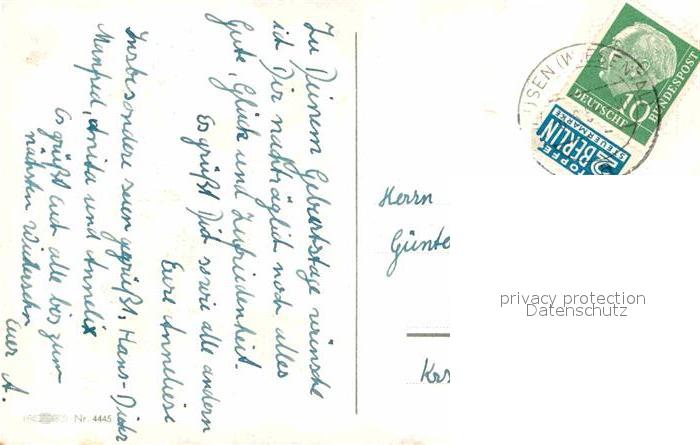 Zu Deinem Geburtstage wünsche
ich Dir nachträglich noch alles
Gute, Glück und Zufriedenheit.
Es grüßt Dich sowie alle andern
Eure Anneliese
Insbesondere seien gegrüßt, Hans-Dieter
Manfred, Anita und Annelix
Es grüßt euch alle bis zum
nächsten Wiedersehn
Euer A.
Nr. 4445
Herrn
Günte
Krs
DEUTSCHE
BUNDESPOST
10
NOTOPFER
2 BERLIN
STEUERMARKE
privacy protection
Datenschutz